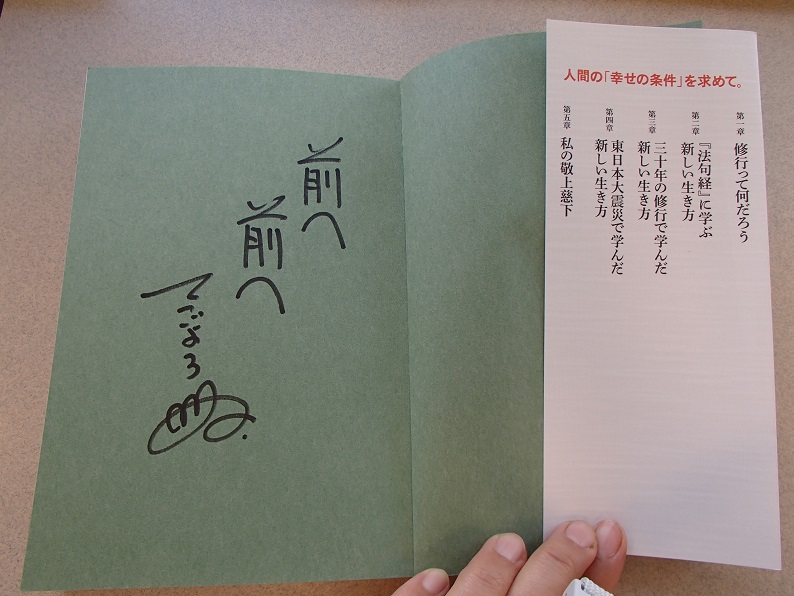 人間の「幸せの条件」を求めて。
第一章 修行って何だろう
第二章 『法句経』に学ぶ
新しい生き方
第三章 三十年の修行で学んだ
新しい生き方
第四章 東日本大震災で学んだ
新しい生き方
第五章 私の敬上慈下
前へ
前へ